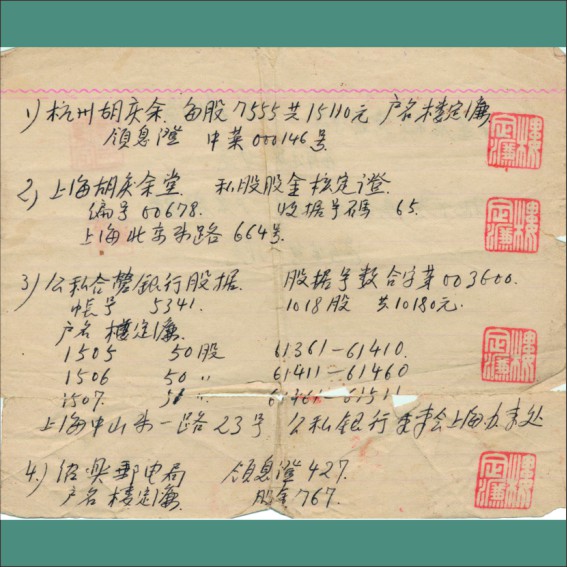 1) 杭州胡庆余. 每股7555共15110元 户名楼定濂
领息證 中藥000146号
2) 上海胡庆余堂. 私股股金核定證.
编号00678. 收据号码 65.
上海北京東路 664号.
3) 公私合营银行股据. 股据号数合字第003600.
帐号 5341. 1018股 共10180元.
户名 楼定濂.
1505 50股 61361-61410.
1506 50 〃 61411-61460
1507. 50 〃
上海中山東一路23号 公私银行 上海办事处
4) 绍興郵电局 领息證427.
户名 楼定濂. 股金767.
楼定濂
楼定濂
楼定濂
楼定濂